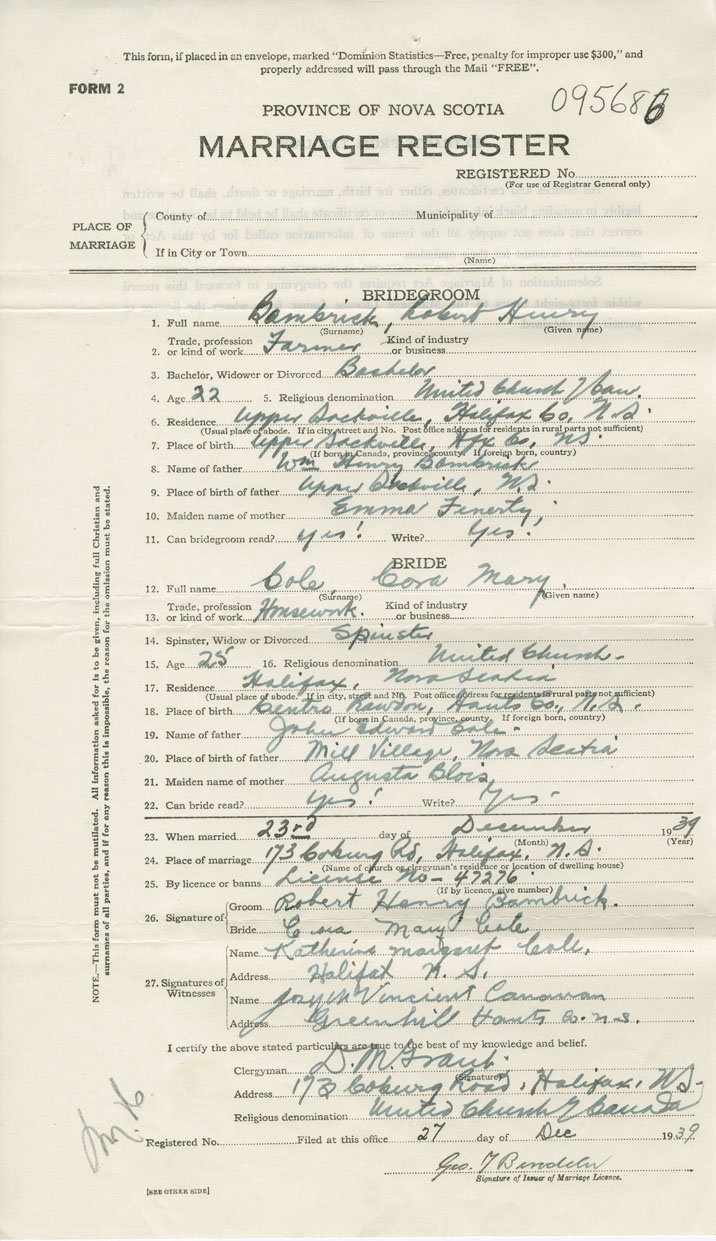 This form, if placed in an envelope, marked "Dominion Statistics—Free, penalty for improper use $300," and
properly addressed will pass through the Mail "FREE".
FORM 2
095686
PROVINCE OF NOVA SCOTIA
MARRIAGE REGISTER
REGISTERED No.
(For use of Registrar General only)
PLACE OF MARRIAGE
County of Municipality of
If in City or Town
(Name)
BRIDEGROOM
1. Full name Bambrick, Robert Henry
(Surname) (Given name)
Trade, profession Kind of industry
2. or kind of work Farmer or business
3. Bachelor, Widower or Divorced Bachelor
4. Age 22 5. Religious denomination United Church of Can.
6. Residence Upper Sackville, Halifax Co, N.S.
(Usual place of abode. If in city, street and No. Post office address for residents in rural parts not sufficient)
7. Place of birth Upper Sackville, Hfx Co, N.S.
(If born in Canada, province, county. If foreign born, country)
8. Name of father Wm Henry Bambrick
9. Place of birth of father Upper Sackville, N.S.
10. Maiden name of mother Emma Finerty,
11. Can bridegroom read? yes! Write? Yes!
BRIDE
12. Full name Cole, Cora Mary,
(Surname) (Given name)
Trade, profession Kind of industry
13. or kind of work Housework. or business
14. Spinster, Widow or Divorced Spinster
15. Age 25 16. Religious denomination United Church.
17. Residence Halifax, Nova Scotia
(Usual place of abode. If in city, street and No. Post office address for residents in rural parts not sufficient)
18. Place of birth Centre Rawdon, Hants Co., N.S.
(If born in Canada, province, county. If foreign born, country)
19. Name of father John Edward Cole.
20. Place of birth of father Mill Village, Nova Scotia
21. Maiden name of mother Augusta Blois,
22. Can bride read? Yes! Write? Yes.
23. When married 23rd day of December 1939
(Month) (Year)
24. Place of marriage 173 Coburg Rd, Halifax, N.S.
(Name of church or clergyman's residence or location of dwelling house)
25. By licence or banns License No - 47276.
(If by licence, give number)
26. Signature of
Groom Robert Henry Bambrick.
Bride Cora Mary Cole
27. Signatures of Witnesses
Name Katherine Margaret Cole,
Address Halifax N.S.
Name Joseph Vincient Canavan
Address Greenhill Hants Co. N.S.
I certify the above stated particulars are true to the best of my knowledge and belief.
Clergyman D. M. Grant.
(Signature)
Address 173 Coburg Road, Halifax, N.S.
Religious denomination United Church of Canada
Registered No. Filed at this office 27 day of Dec 1939.
Signature of Issuer of Marriage Licence.
[SEE OTHER SIDE]
NOTE.—This form must not be mutilated. All information asked for is to be given, including full Christian and
surnames of all parties, and if for any reason this is impossible, the reason for the omission must be stated.